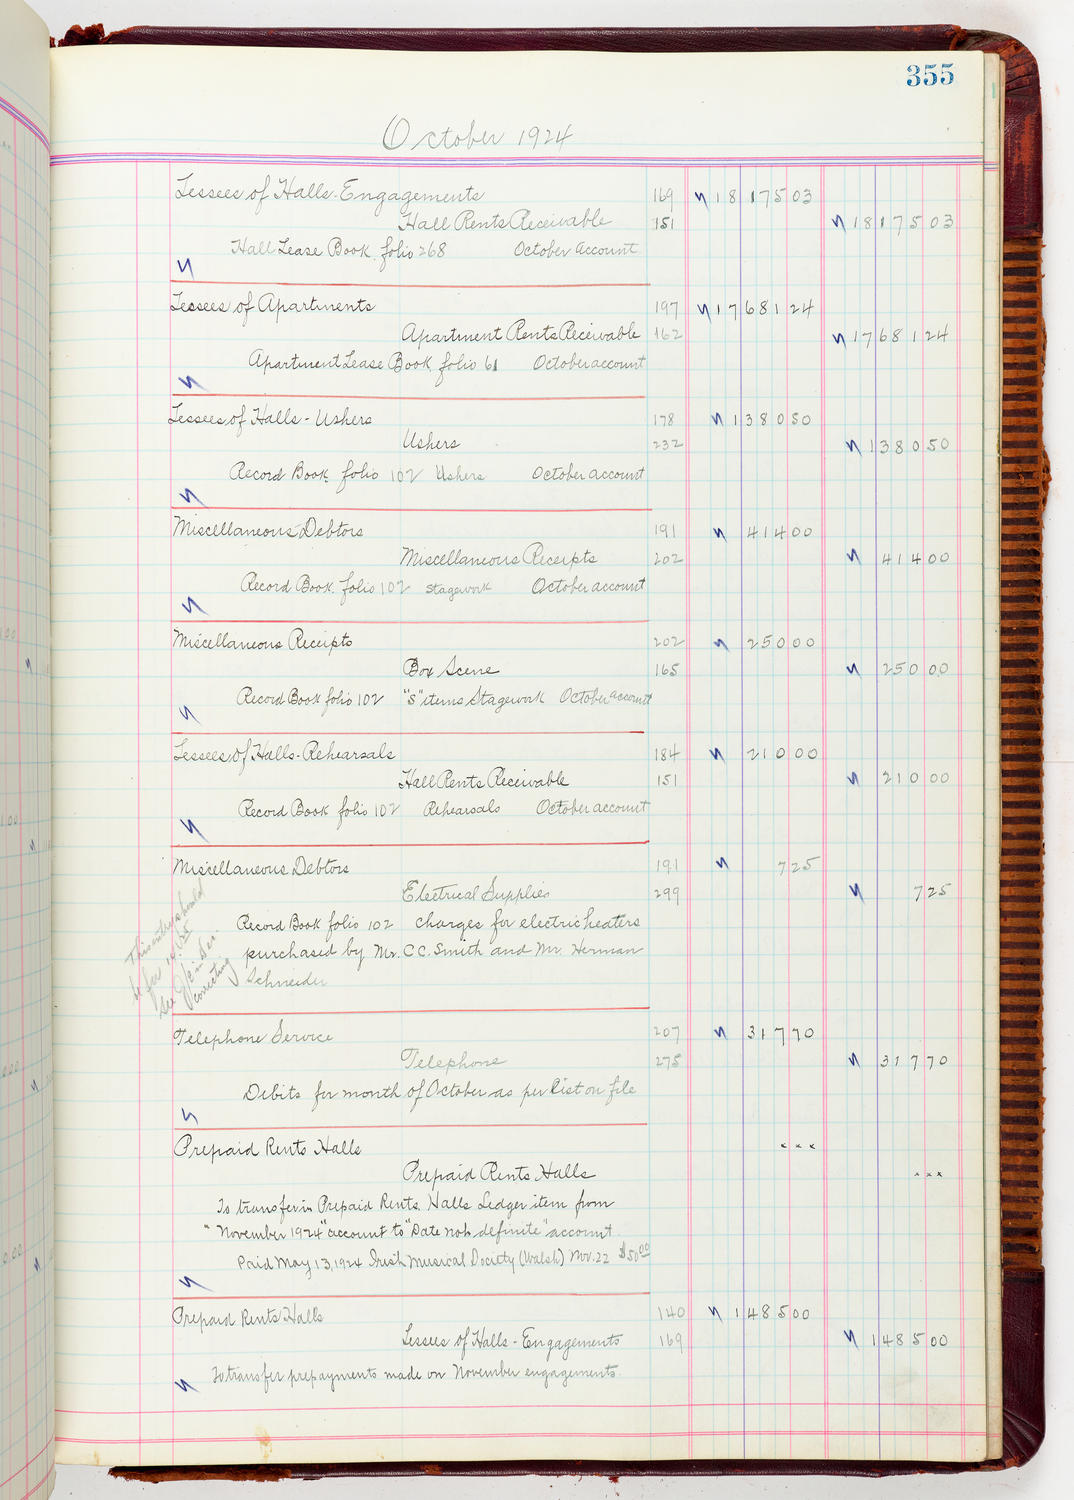 355
October 1924
Lessees of Halls-Engagements 169 18 175 03
Hall Rents Receivable 151 18 175 03
Hall Lease Book folio 268 October account
Lessees of Apartments 197 17 681 24
Apartment Rents Receivable 162 17 681 24
Apartment Lease Book folio 61 October account
Lessees of Halls - Ushers 178 1 380 50
Ushers 232 1 380 50
Record Book folio 102 Ushers October account
Miscellaneous Debtors 191 414 00
Miscellaneous Receipts 202 414 00
Record Book folio 102 stagework October account
Miscellaneous Receipts 202 250 00
Box Scene 165 250 00
Record Book folio 102 "S" items Stagework October account
Lessees of Halls-Rehearsals 184 210 00
Hall Rents Receivable 151 210 00
Record Book folio 102 Rehearsals October account
Miscellaneous Debtors 191 7 25
Electrical Supplies 299 7 25
Record Book folio 102 charges for electric heaters
purchased by Mr. C C. Smith and Mr. Herman
Schneider
This entry should
be for 14.25
see J/E in Dec.
correcting
Telephone Service 207 317 70
Telephone 275 317 70
Debits for month of October as per list on file
Prepaid Rents Halls x x x
Prepaid Rents Halls x x x
To transfer in Prepaid Rents Halls Ledger item from
"November 1924" account to "Date not definite" account.
Paid May 13, 1924 Irish Musical Society (Walsh) Nov. 22 $50.00
Prepaid Rents Halls 140 1 485 00
Lessees of Halls - Engagements 169 1 485 00
To transfer prepayments made on November engagements.